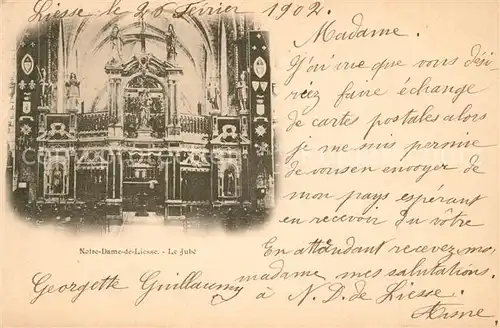 Liesse le 26 Février 1902.
Madame.
J'ai vue que vous dési
rez faire échange
de cartes postales alors
je me suis permise
de vous en envoyer de
mon pays espérant
en recevoir du vôtre
En attendant recevez,
madame mes salutations.
Notre-Dame-de-Liesse. - Le Jubé
Georgette Guillaumy
à N. D. de Liesse.
Aisne.